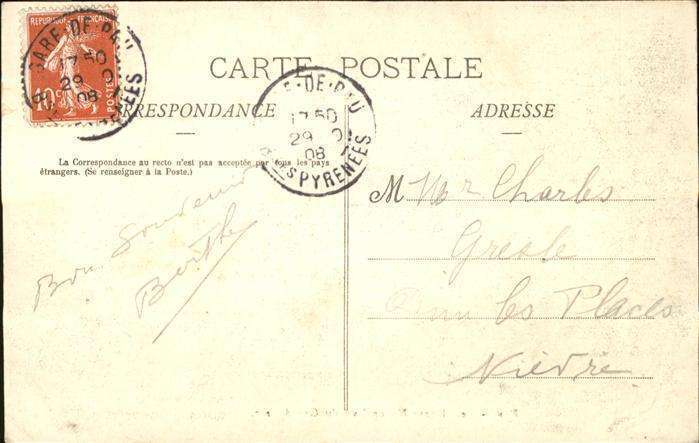 REPUBLIQUE FRANÇAISE
10c POSTES
GARE-DE-PAU
17 50
29
08
CARTE POSTALE
CORRESPONDANCE
ADRESSE
E-DE-PAU
17 50
29
08
PYRENEES
La Correspondance au recto n'est pas acceptée par tous les pays
étrangers. (Se renseigner à la Poste.)
Bon Souvenir
Berthe
M Mr Charles
les Places
Nièvre